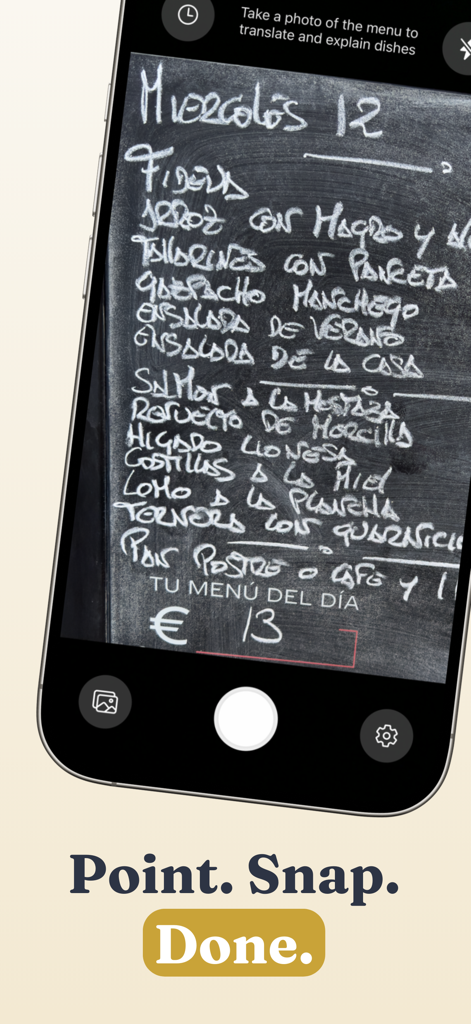 Take a photo of the menu to
translate and explain dishes
MIERCOLES 12
FIDEUA
ARROZ CON MAGRO Y
TALLARINES CON PANCETA
GAZPACHO MANCHEGO
ENSALADA DE VERANO
ENSALADA DE LA CASA
SALMON A LA MOSTAZA
REVUELTO DE MORCILLA
HIGADO LIONESA
COSTILLAS A LA MIEL
LOMO A LA PLANCHA
TERNERA CON GUARNICI
PAN POSTRE O CAFE Y 1
TU MENÚ DEL DÍA
€ 13
Point. Snap.
Done.